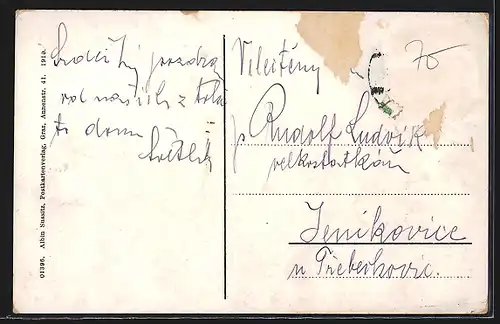 Srdečný pozdrav
od našich z
domu
01396, Albin Sussitz, Postkartenverlag, Graz, Annenstr. 41. 1910.
70
Velectěný
p Rudolf Ludvík
velkostatkář
Jenikovice
u Třebechovic.